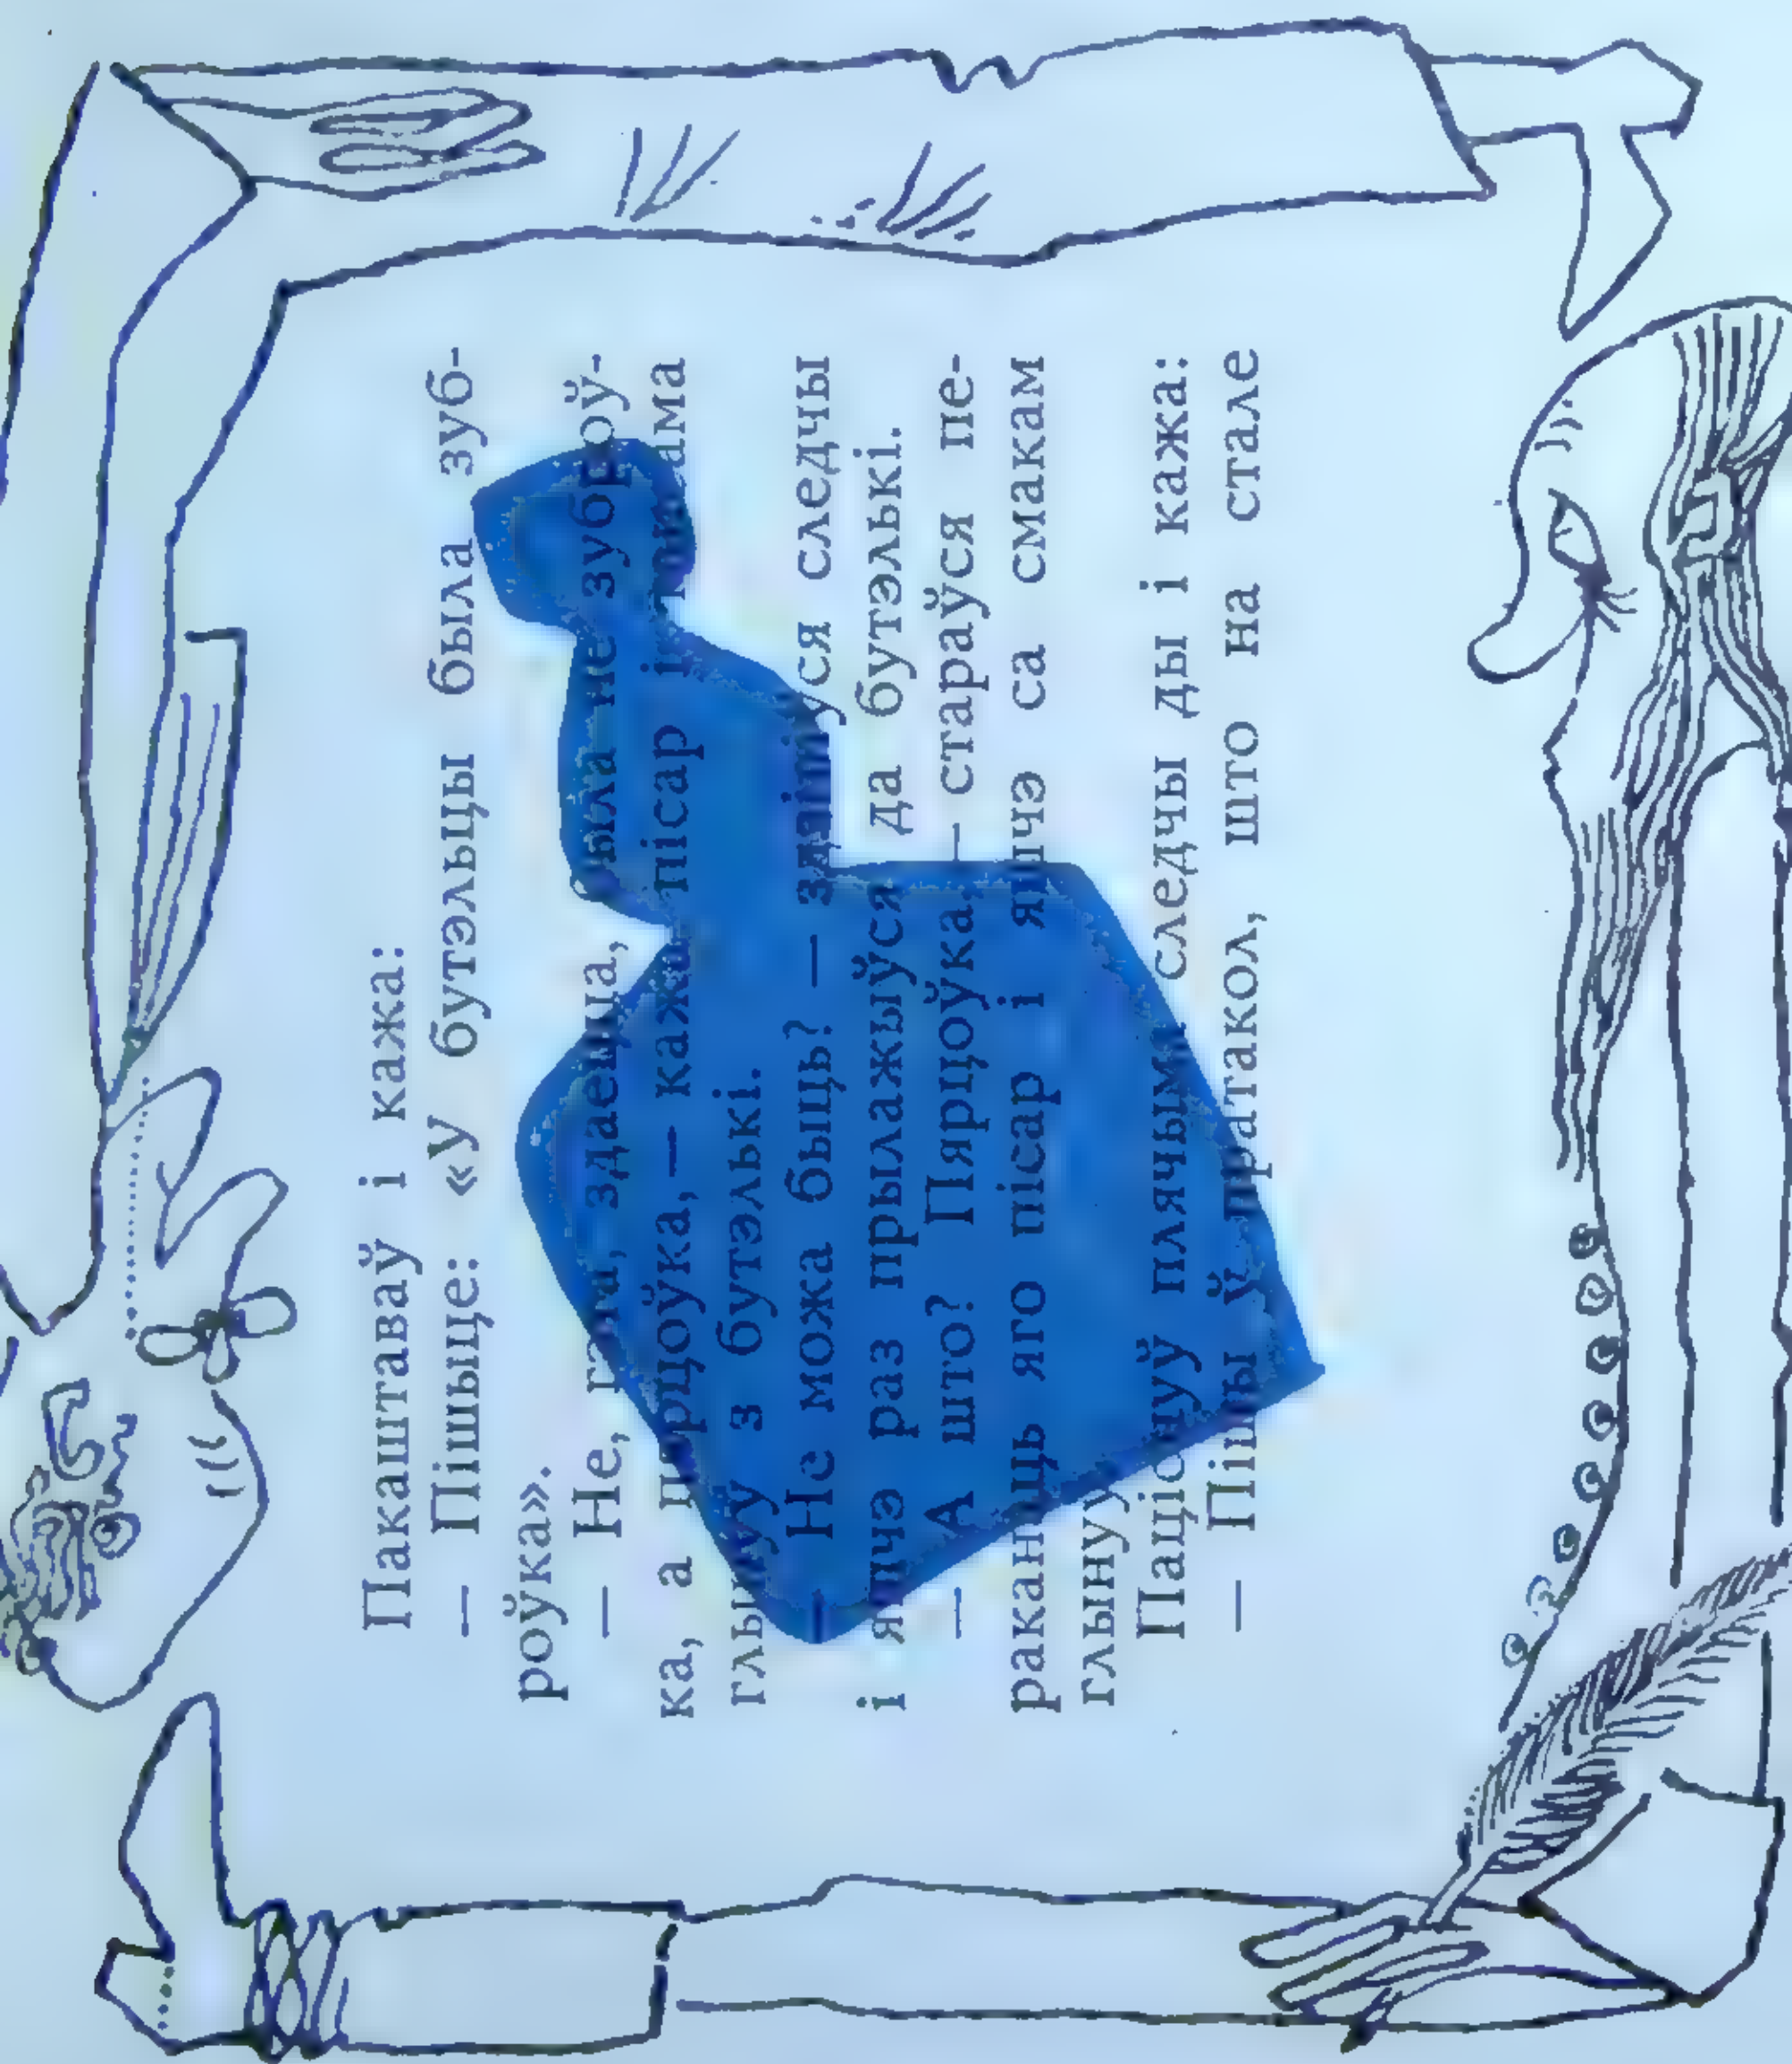 Пакаштаваў і кажа:
— Пішыце: «У бутэльцы была зуб-
роўка».
— Не, гэта, здаецца, была не зуброў-
ка, а пярцоўка,— кажа пісар і таксама
глынуў з бутэлькі.
— Не можа быць? — здзівіўся следчы
і яшчэ раз прылажыўся да бутэлькі.
— А што? Пярцоўка,— стараўся пе-
раканаць яго пісар і яшчэ са смакам
глынуў
Паціснуў плячыма следчы ды і кажа:
— Пішы ў пратакол, што на стале